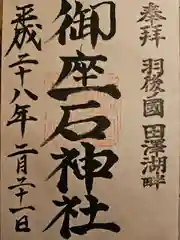 奉拝
羽後の國 田澤湖畔
御座石神社
平成二十八年 二月二十一日